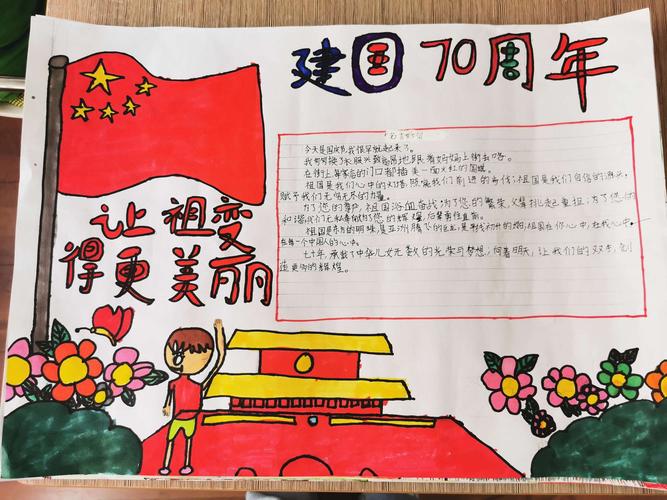 建国70周年
让祖国变
得更美丽
今天是国庆节,我很早就起来了。
我匆匆换了衣服兴致勃勃地跟着妈妈上街去咯。
在街上,每家店的门口都插着一面火红的国旗。
祖国是我们心中的灯塔,照亮我们前进的方信;祖国是我们自信的源头,
赋予我们无穷无尽的力量。
为了您的尊严,祖国浴血奋战;为了您的繁荣,父辈挑起重担;为了您的
和谐,我们无私奉献;为了您的辉煌,后辈勇往直前。
祖国是东方的明珠,是亚洲腾飞的巨龙,是初升的太阳,祖国在你心中,在我心中,
在每一个中国人的心中。
七十年,承载了中华儿女无数的光荣与梦想,向着明天,让我们的双手,创
造更多的辉煌。